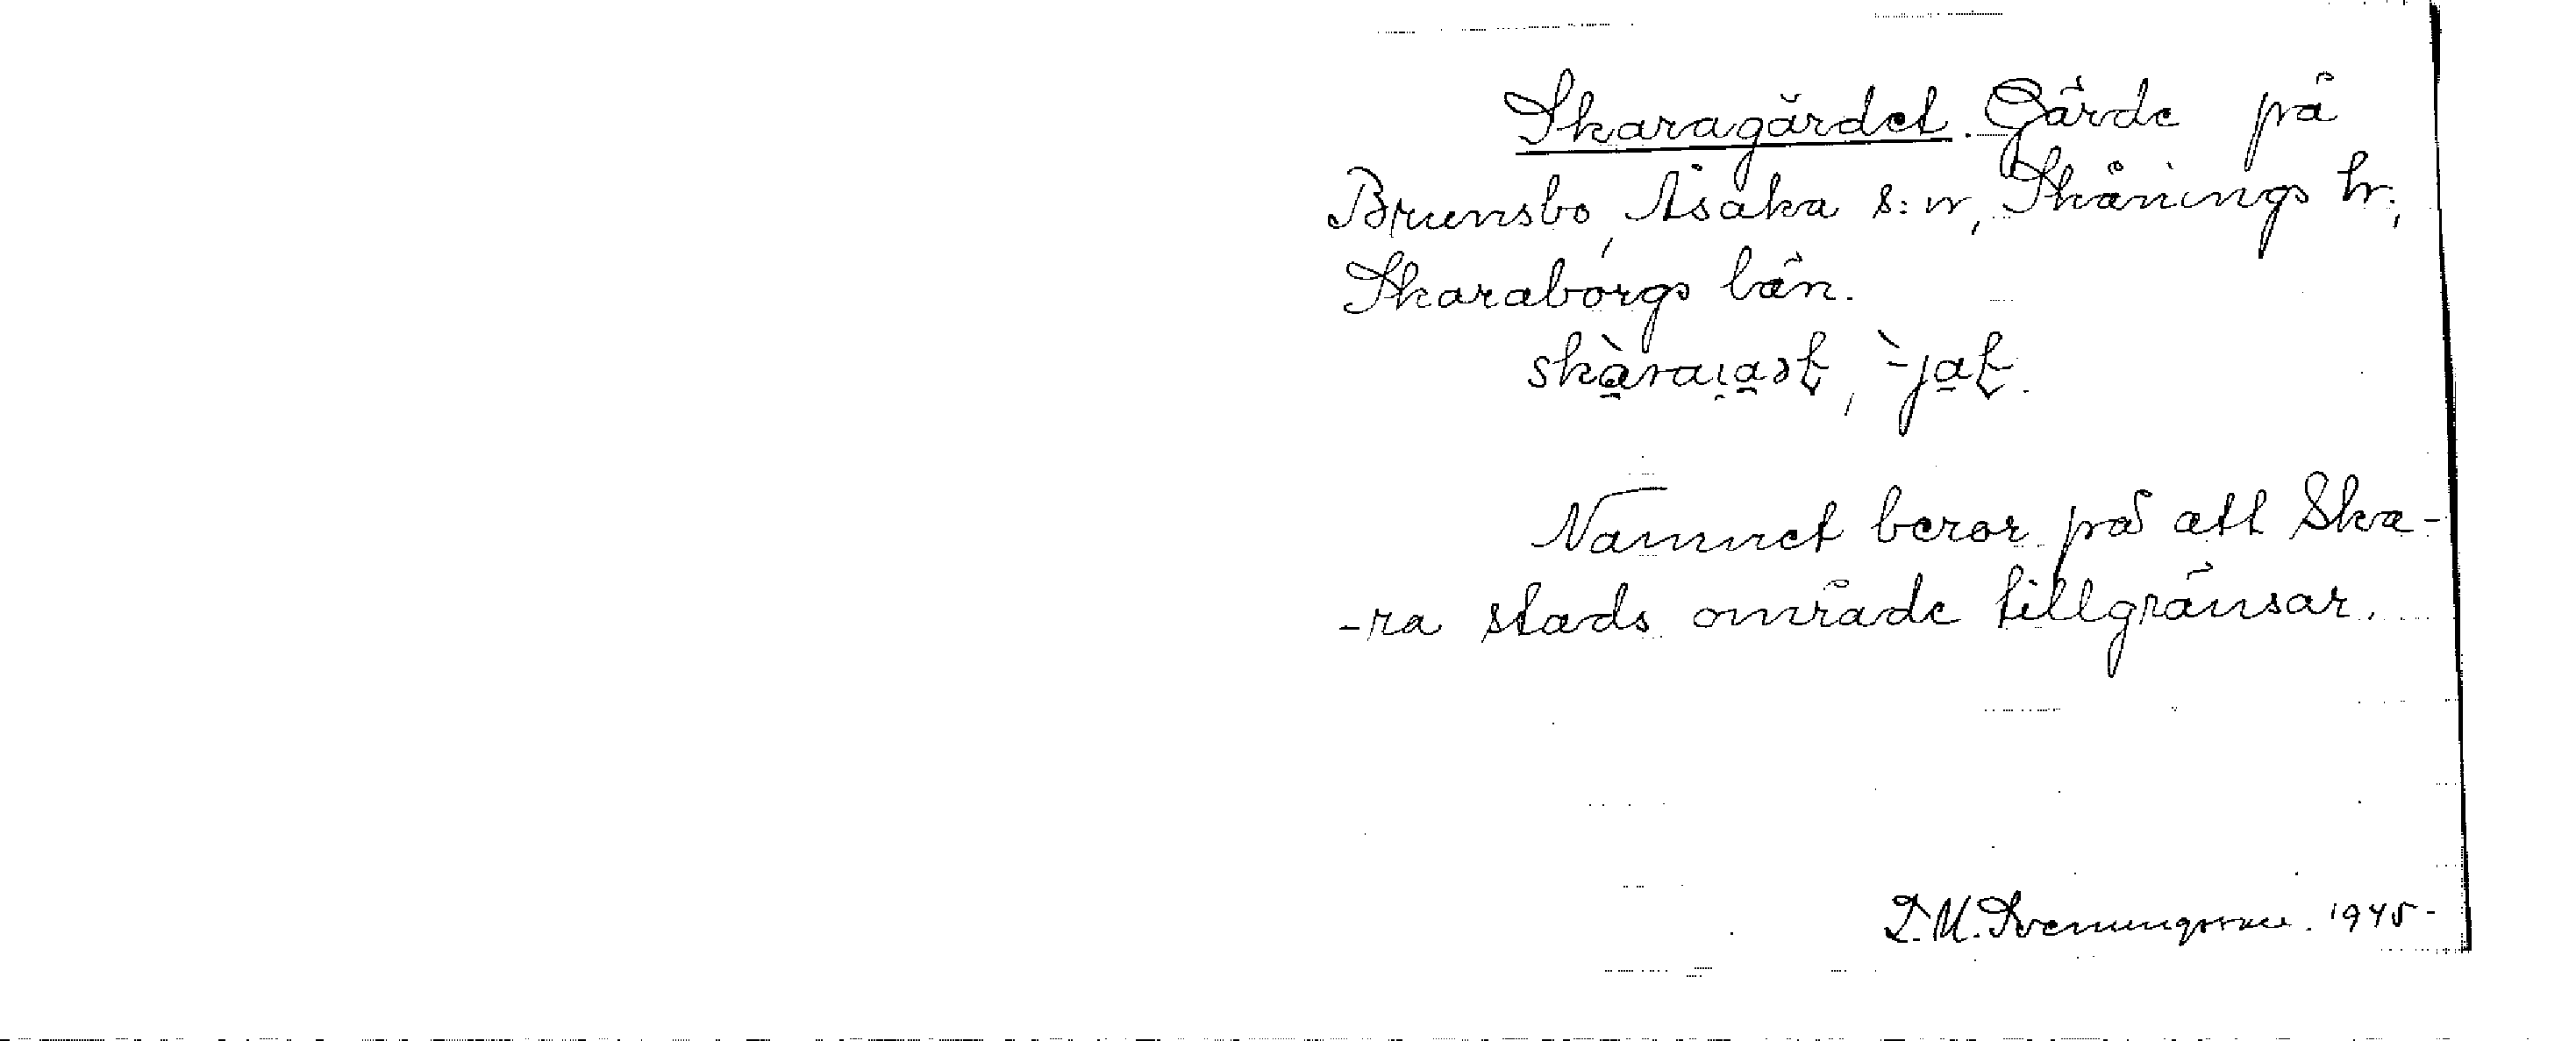 Skaragärdet. Gärde på
Brunsbo, Åsaka s:n, Skånings hr.,
Skaraborgs län.
Namnet beror på att Ska-
-ra stads område tillgränsar.
1945